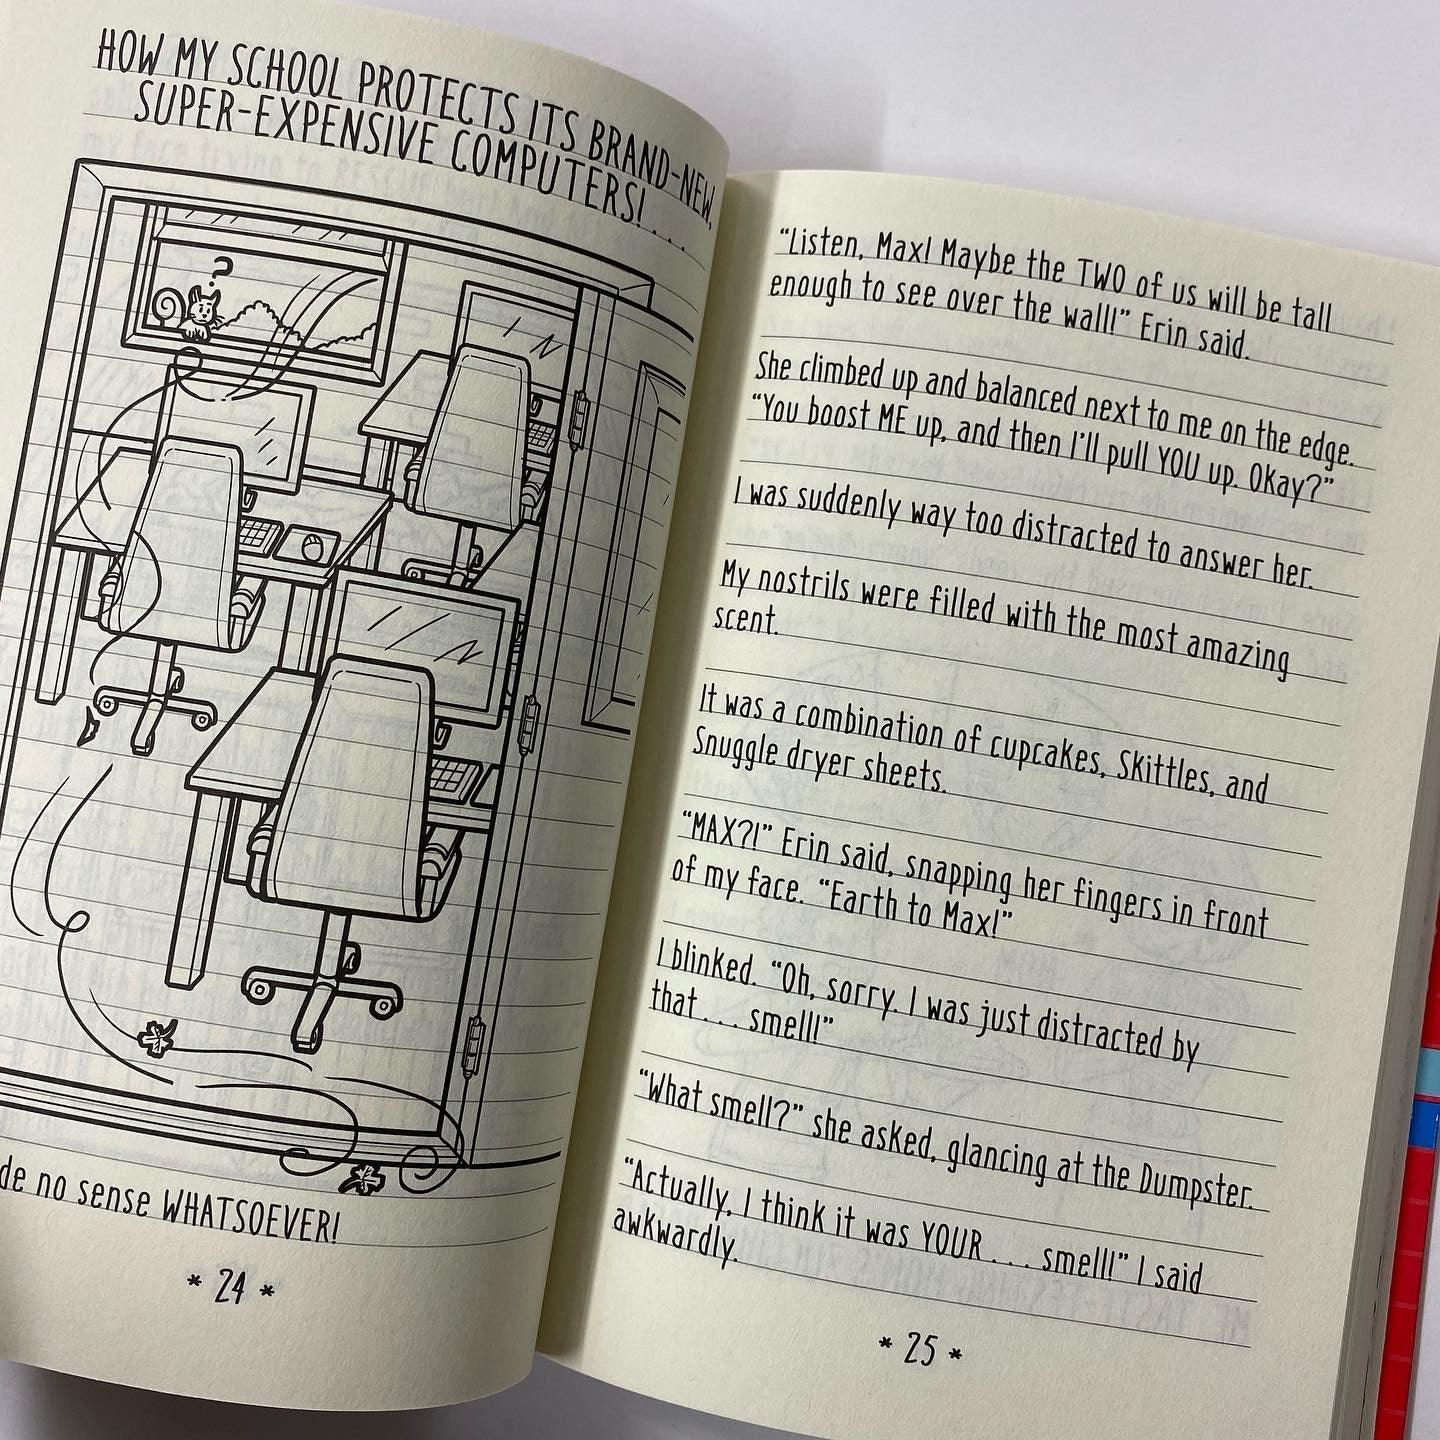 HOW MY SCHOOL PROTECTS ITS BRAND-NEW,
SUPER-EXPENSIVE COMPUTERS! . . . .
?
no sense WHATSOEVER!
* 24 *
“Listen, Max! Maybe the TWO of us will be tall
enough to see over the wall!” Erin said.
She climbed up and balanced next to me on the edge.
“You boost ME up, and then I’ll pull YOU up. Okay?”
I was suddenly way too distracted to answer her.
My nostrils were filled with the most amazing
scent.
It was a combination of cupcakes, Skittles, and
Snuggle dryer sheets.
“MAX?!” Erin said, snapping her fingers in front
of my face. “Earth to Max!”
I blinked. “Oh, sorry. I was just distracted by
that . . . . smell!”
“What smell?” she asked, glancing at the Dumpster.
“Actually, I think it was YOUR . . . . smell!” I said
awkwardly.
* 25 *